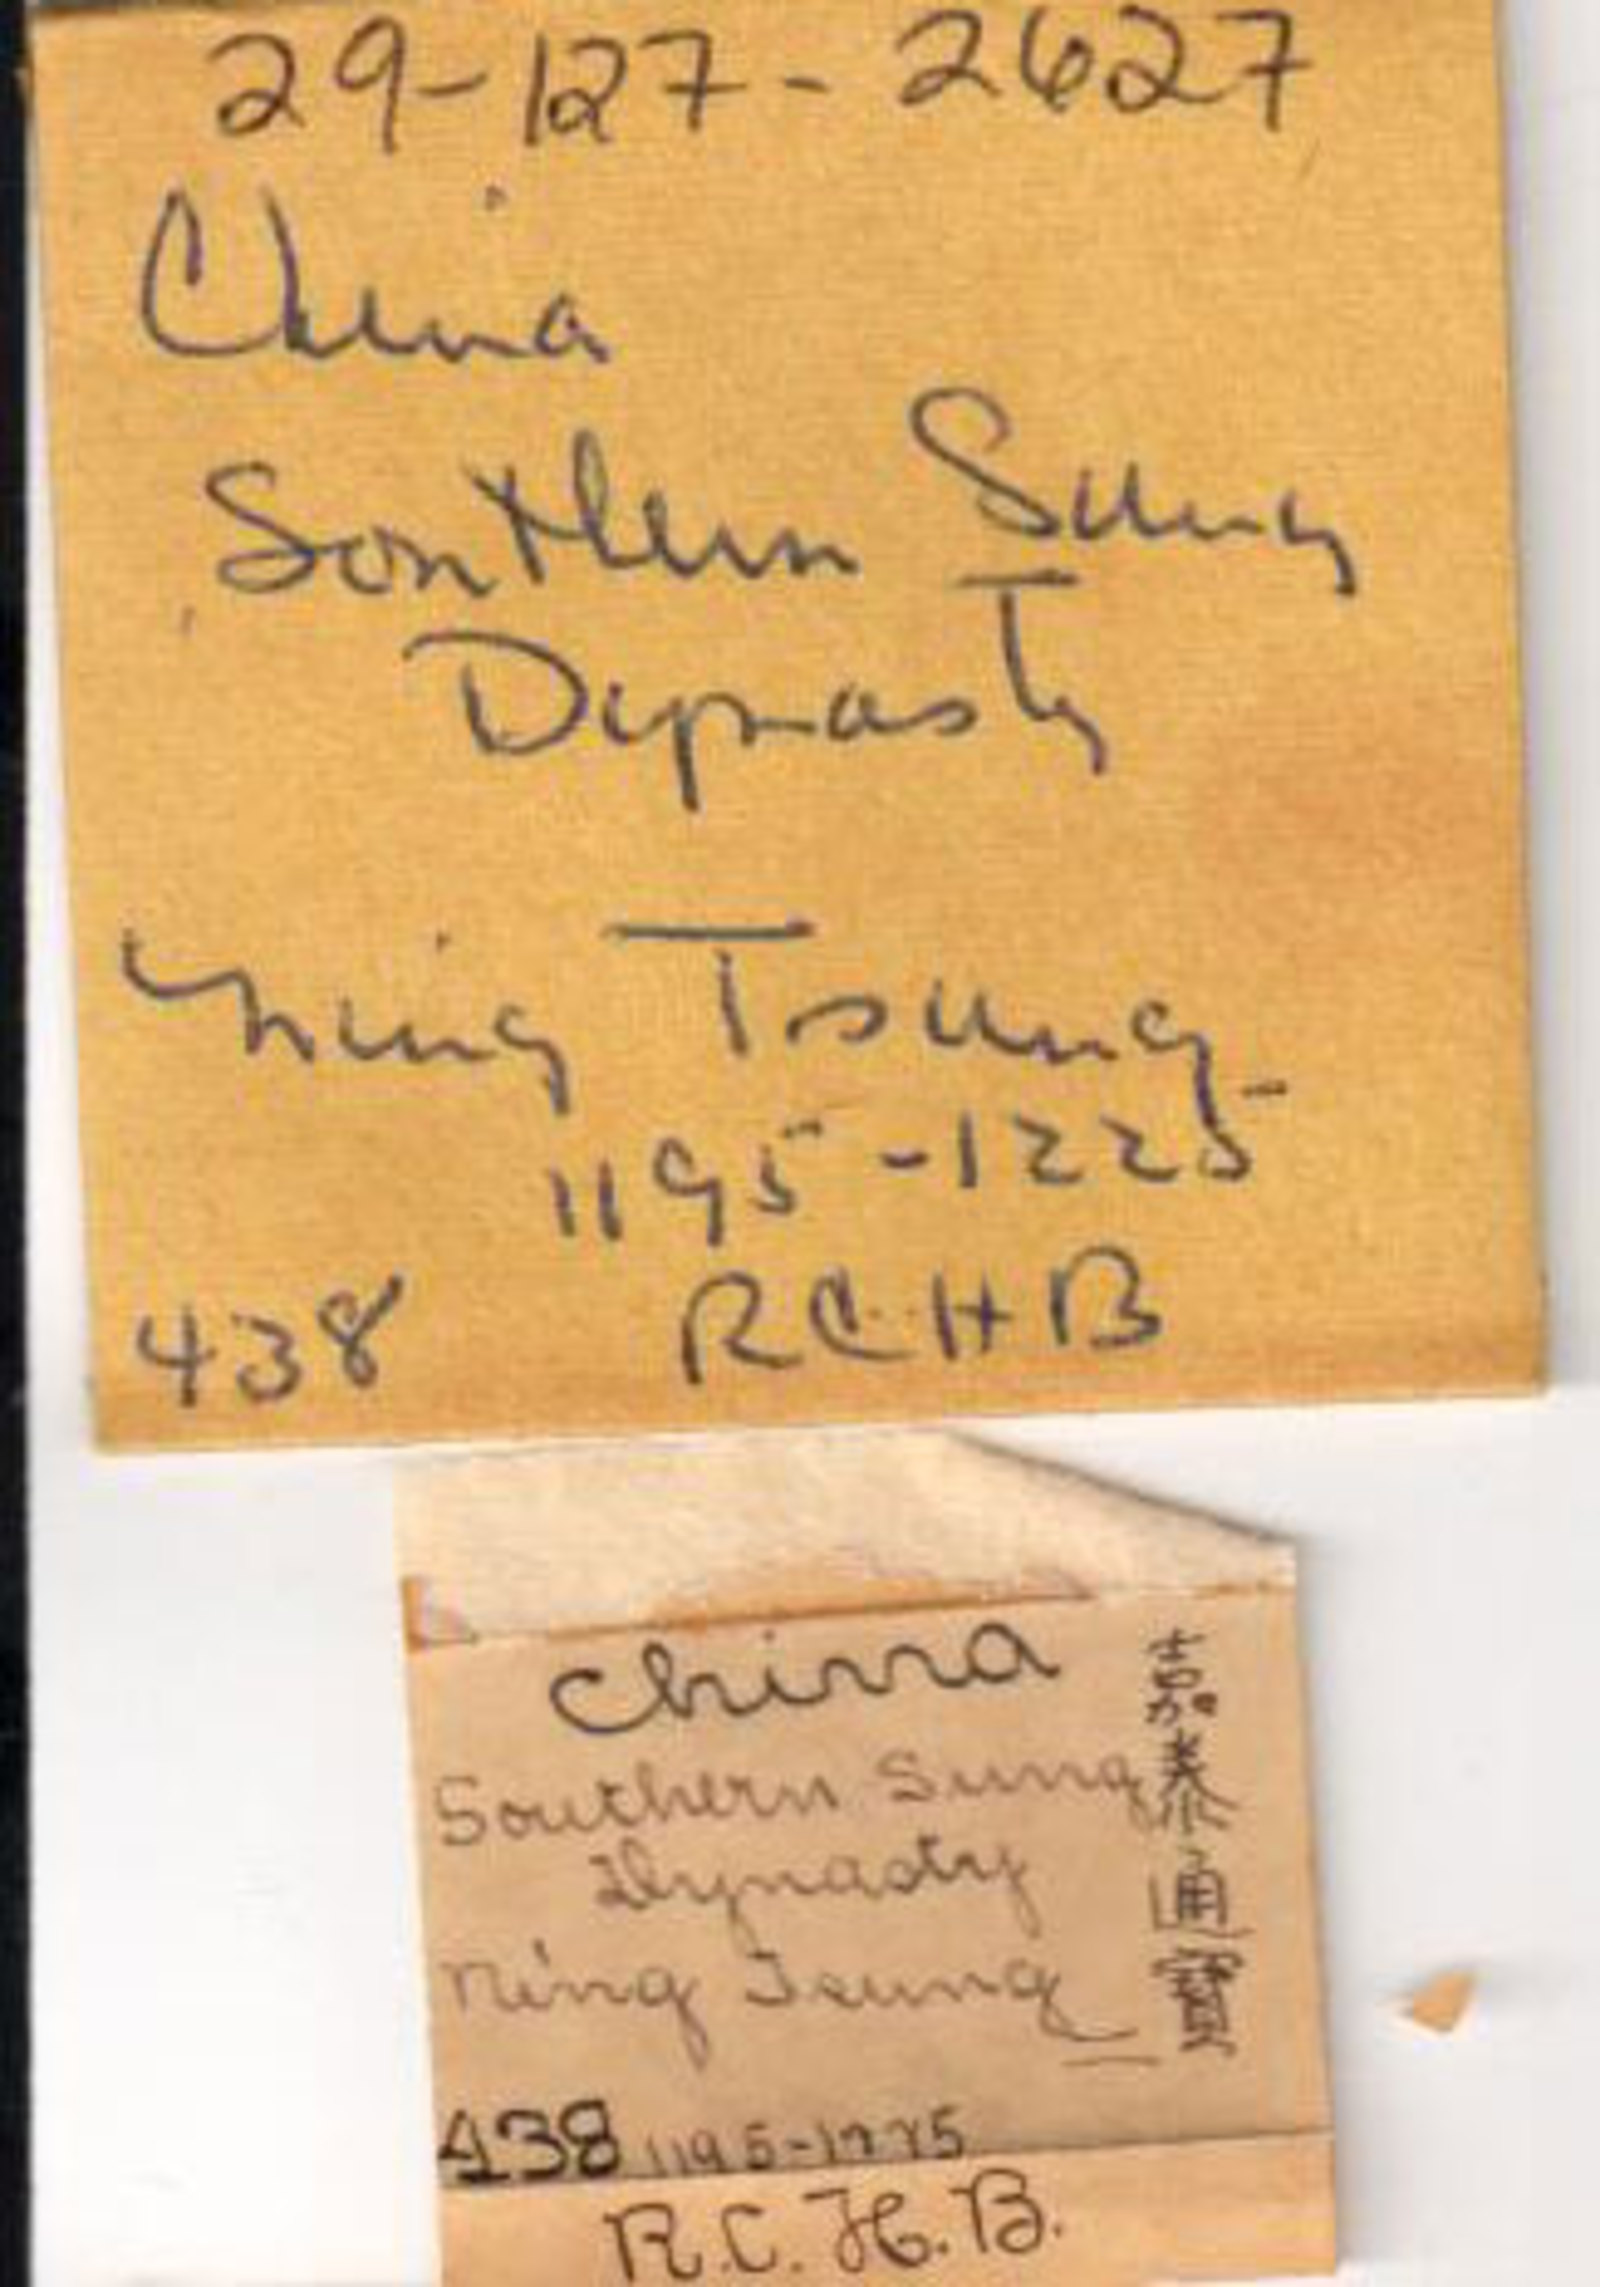 29-127-2627
China
Southern Sung
Dynasty
Ning Tsung
1195-1225
438 RCHB
China
Southern Sung
Dynasty
Ning Tsung
438 1195-1225
R.C.H.B.
嘉泰通寳